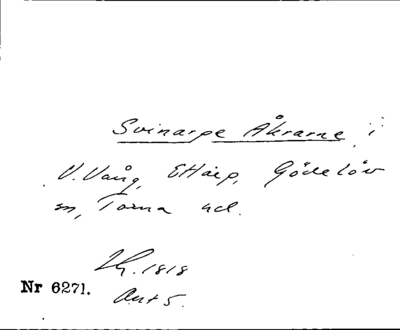 Svinarpe Åkrarne i
V. Vång, Ettarp, Gödelöv
sn, Torna hd.
1818
Nr 6271.
Akt 5.